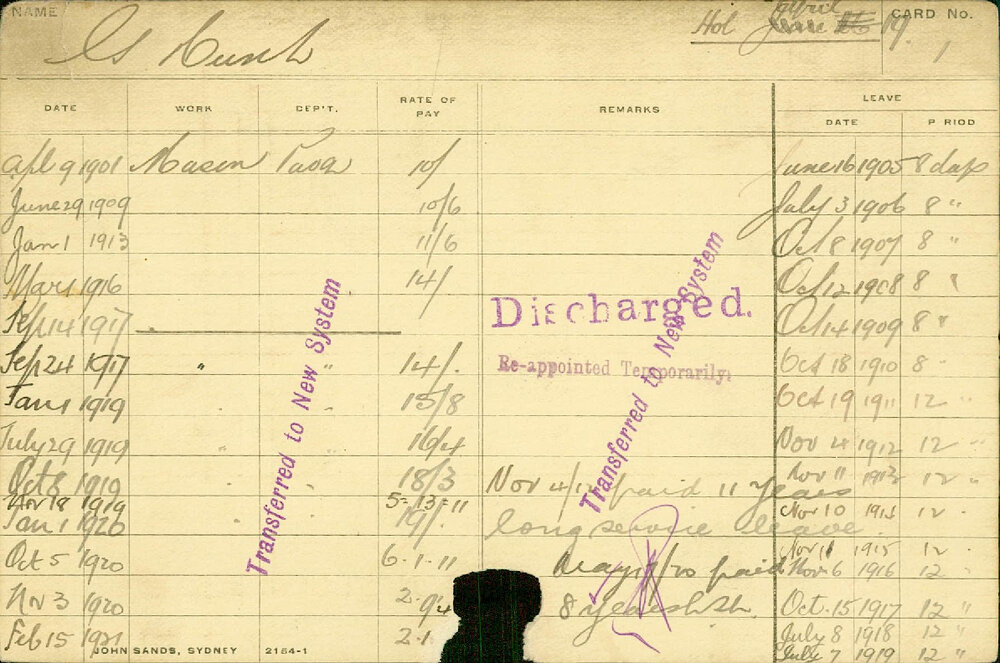 NAME
G
Hol April 19.
CARD No.
1
DATE WORK DEP'T. RATE OF PAY REMARKS LEAVE
DATE P RIOD
Apl 9 1901 Mason 10/ June 16 1905 8 days
June 29 1909 10/6 July 3 1906 8 "
Jan 1 1913 11/6 Oct 8 1907 8 "
Mar 1 1916 14/ Oct 12 1908 8 "
Sep 14 1917 Discharged. Oct 14 1909 8 "
Sep 24 1917 " " 14/. Re-appointed Temporarily. Oct 18 1910 8 "
Jan 1 1919 15/8 Oct 19 1911 12 "
July 29 1919 " " 16/4 Nov 4 1912 12 "
Oct 8 1919 " " 18/3 Nov 4/ paid 11 years Nov 11 1913 12 "
Nov 18 1919 5-13-11 Nov 10 1914 12 "
Jan 1 1920 " 19/. long service leave
Nov 11 1915 12 "
Oct 5 1920 6-1-11 May /20 paid Nov 6 1916 12 "
Nov 3 1920 8 years Oct. 15 1917 12 "
Feb 15 1921 July 8 1918 12 "
July 7 1919 12 "
Transferred to New System
Transferred to New System
JOHN SANDS, SYDNEY 2154-1